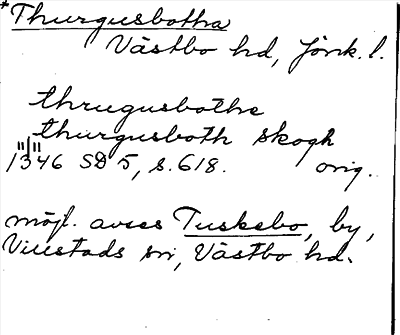 *Thurgusbothra
Västbo hd, Jönk. l.
thrugusbothe
thurgusboth skogh
1346 SD 5, s. 618. orig.
möjl. avses Tuskebo, by,
Villstads sn, Västbo hd.